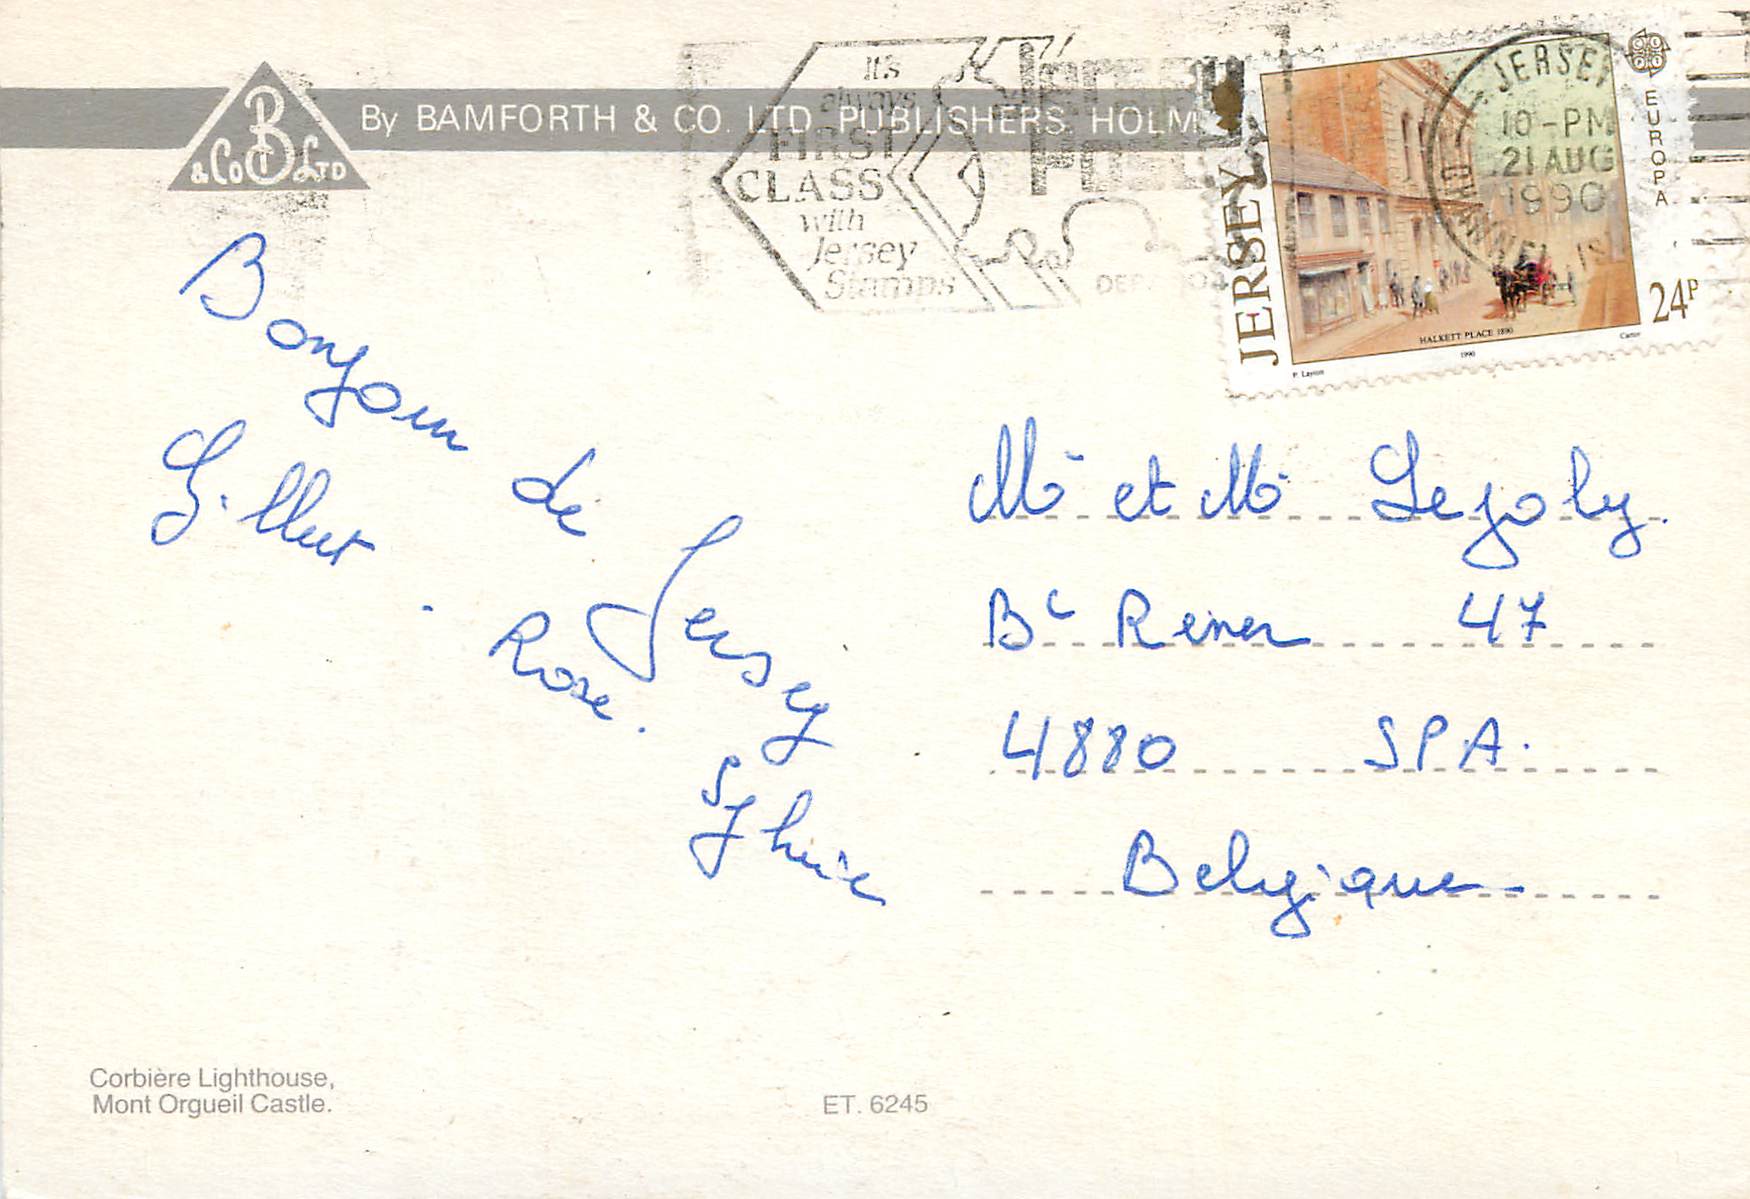 By BAMFORTH & CO. LTD. PUBLISHERS, HOLM
B
& Co Ltd
It's
always
FIRST
CLASS
with
Jersey
Stamps
Jersey
Post
JERSEY
10-PM
21 AUG
1990
CHANNEL IS
JERSEY
EUROPA
24P
HALKETT PLACE 1890
1990
P. Layton
Cartor
Bonjour de Jersey
Gilbert. Rose. Sylvie
Mr et Me Lejoly.
Bd Rener 47
4880 SPA.
Belgique
Corbière Lighthouse,
Mont Orgueil Castle.
ET. 6245